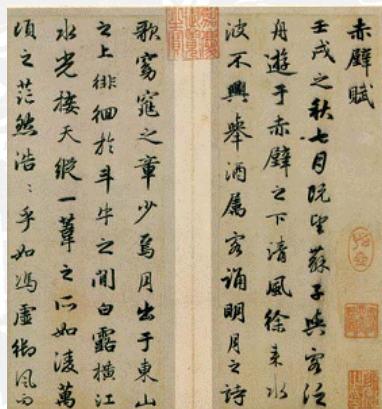 赤壁賦
壬戌之秋七月既望蘇子與客泛
舟遊于赤壁之下清風徐来水
波不興舉酒属客誦明月之詩
歌窈窕之章少焉月出于東山
之上徘徊於斗牛之間白露横江
水光接天縱一葦之所如凌萬
頃之茫然浩〻乎如馮虚御風而